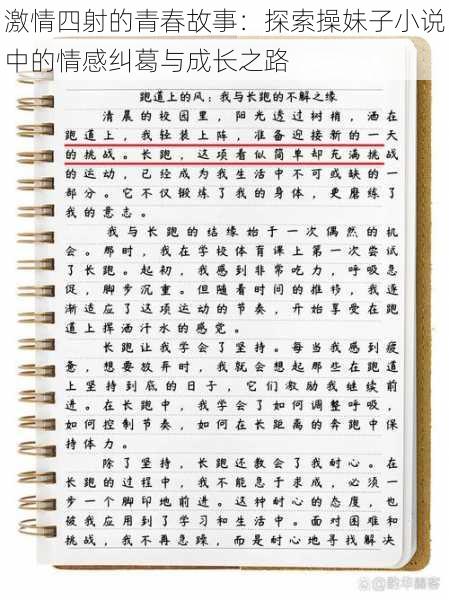 激情四射的青春故事：探索操妹子小说
中的情感纠葛与成长之路
跑道上的风：我与长跑的不解之缘
清晨的校园里，阳光透过树梢，洒在
跑道上，我轻装上阵，准备迎接新的一天
的挑战。长跑，这项看似简单却充满挑战
的运动，已经成为我生活中不可或缺的一
部分。它不仅锻炼了我的身体，更磨练了
我的意志。
我与长跑的结缘始于一次偶然的机
会。那时，我在学校体育课上第一次尝试
了长跑。起初，我感到非常吃力，呼吸急
促，脚步沉重。但随着时间的推移，我逐
渐适应了这项运动的节奏，开始享受在跑
道上挥洒汗水的感觉。
长跑让我学会了坚持。每当我感到疲
惫，想要放弃时，我就会想起那些在跑道
上坚持到底的日子，它们激励我继续前
进。在长跑中，我学会了如何调整呼吸，
如何控制节奏，如何在长距离的奔跑中保
持体力。
除了坚持，长跑还教会了我耐心。在
长跑的过程中，我不能急于求成，必须一
步一个脚印地前进。这种耐心的态度，也
被我应用到了学习和生活中。面对困难和
挑战，我不再急躁，而是耐心地寻找解决